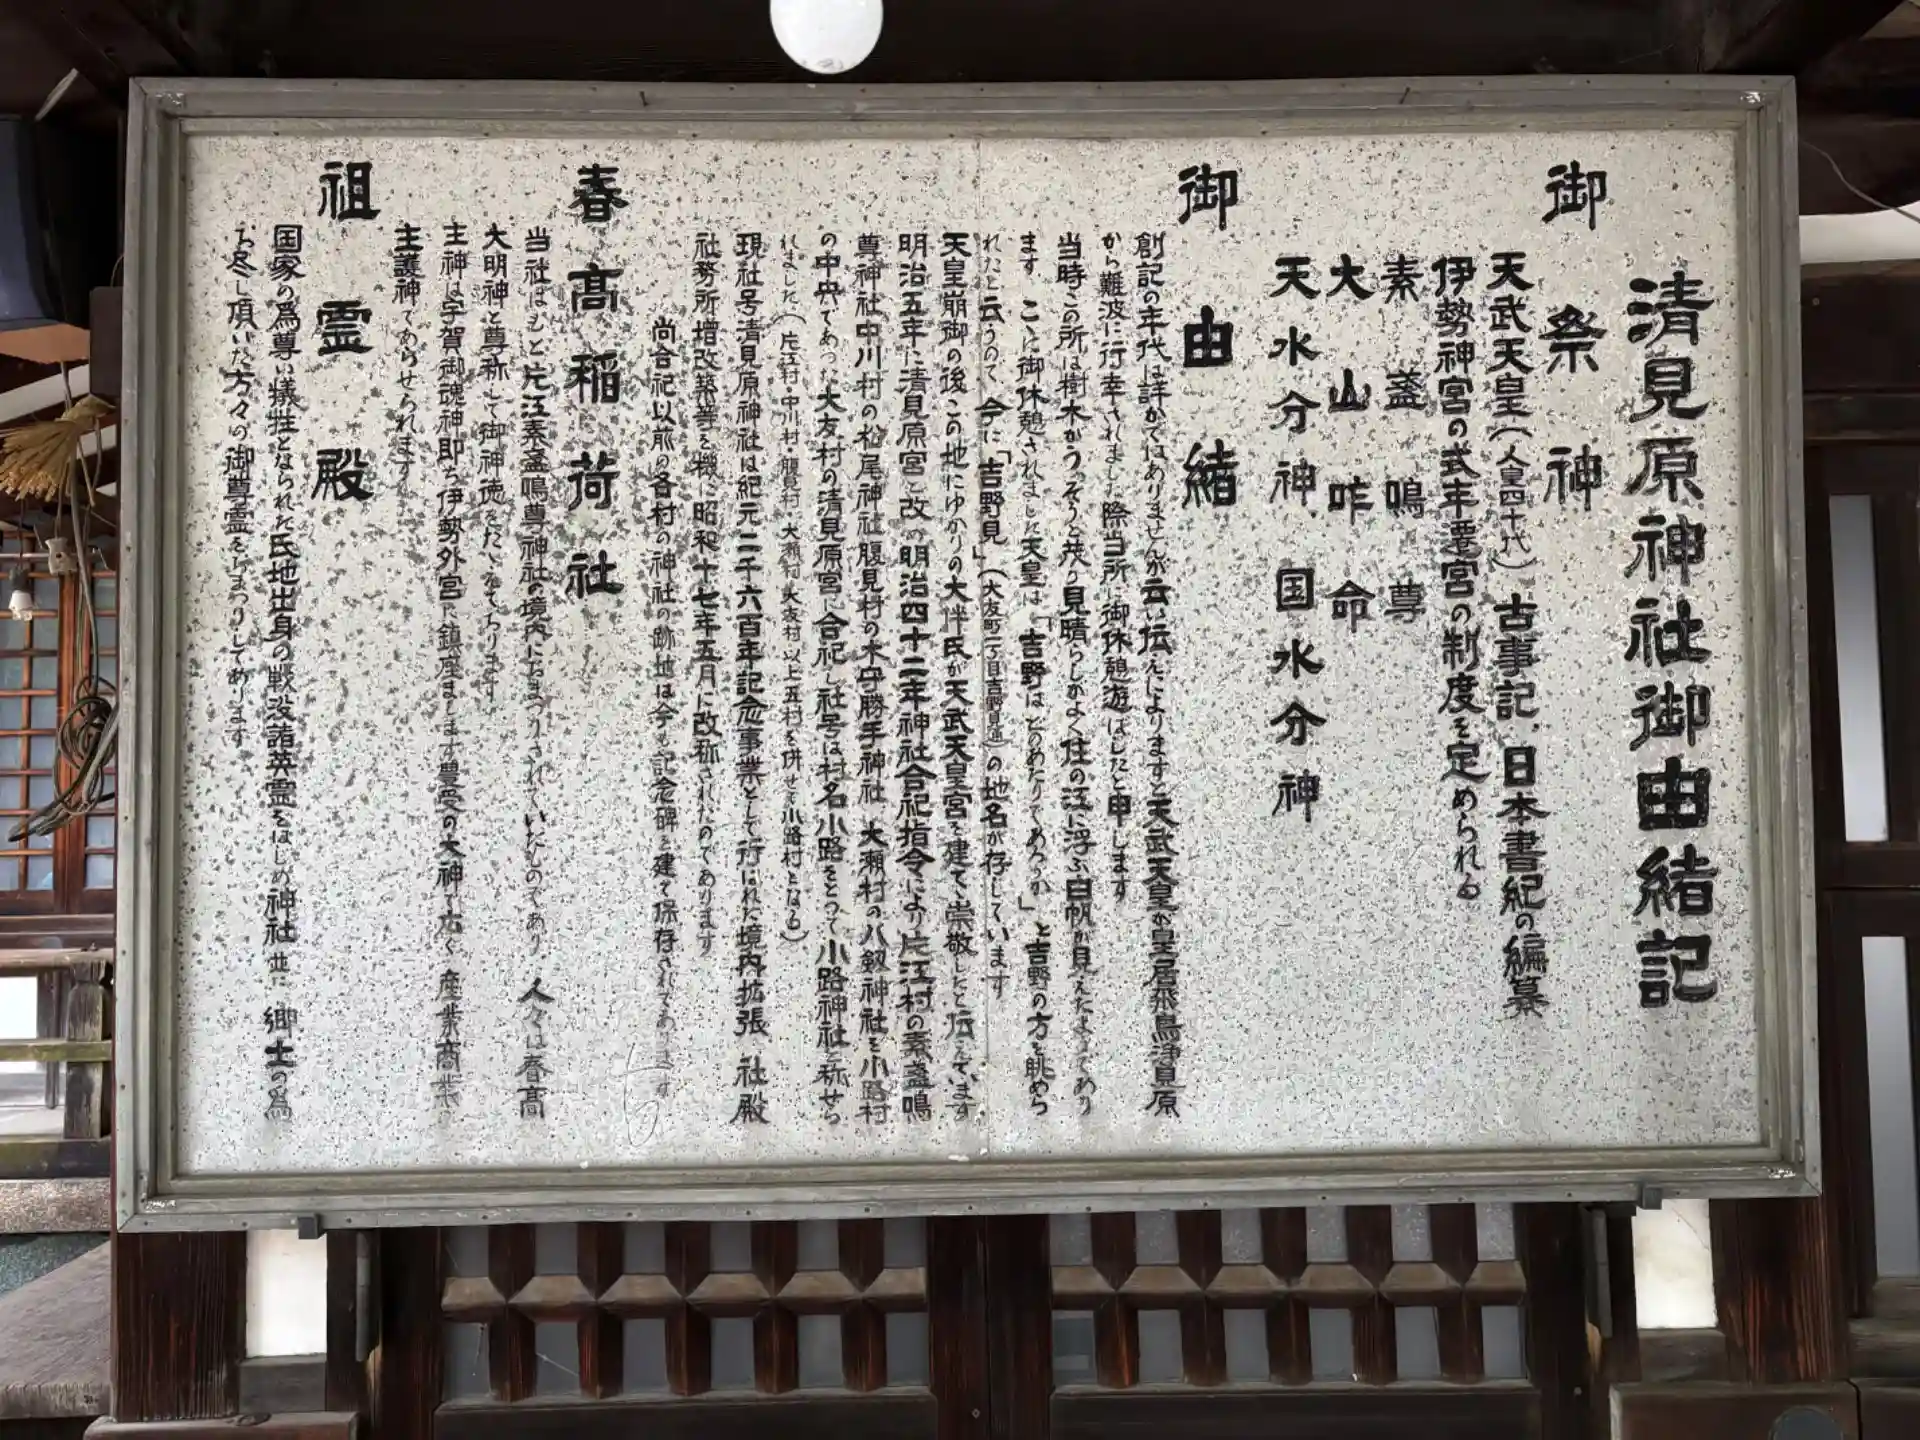 清見原神社御由緒記
御祭神
天武天皇(人皇四十代) 古事記.日本書紀の編纂
伊勢神宮の式年遷宮の制度を定められる
素盞鳴尊
大山咋命
天水分神.国水分神
御由緒
創記の年代は詳かではありませんが云い伝えによりますと天武天皇が皇居飛鳥浄見原
から難波に行幸されました際当所に御休憩遊ばしたと申します
当時この所は樹木がうっそうと茂り見晴らしがよく住の江に浮ぶ白帆が見えたようであり
ます こゝに御休憩されました天皇は「吉野はどのあたりであろうか」と吉野の方を眺めら
れたと云うので今に「吉野見」(大友町二丁目吉野見通)の地名が存しています
天皇崩御の後この地にゆかりの大伴氏が天武天皇宮を建て崇敬したと伝えています
明治五年に清見原宮と改め明治四十二年神社合祀指令により片江村の素盞鳴
尊神社中川村の松尾神社腹見村の木守勝手神社 大瀬村の八剱神社を小路村
の中央であった大友村の清見原宮に合祀し社号は村名小路をとって小路神社と称せら
れました(片江村・中川村・腹見村・大瀬村・大友村以上五村を併せて小路村となる)
現社号清見原神社は紀元二千六百年記念事業として行われた境内拡張 社殿
社務所増改築等を機に昭和十七年五月に改称されたのであります
尚合祀以前の各村の神社の跡地は今も記念碑を建て保存されてあります
春高稲荷社
当社はもと片江素盞鳴尊神社の境内におまつりされていたものであり 人々は春高
大明神と尊称して御神徳をたたえております
主神は宇賀御魂神即ち伊勢外宮に鎮座まします豊受の大神で広く 産業商業
主護神であらせられます
祖霊殿
国家の為尊い犠牲となられた氏地出身の戦没諸英霊をはじめ神社並に 郷土の為
お尽し頂いた方々の御尊霊をおまつりしてあります